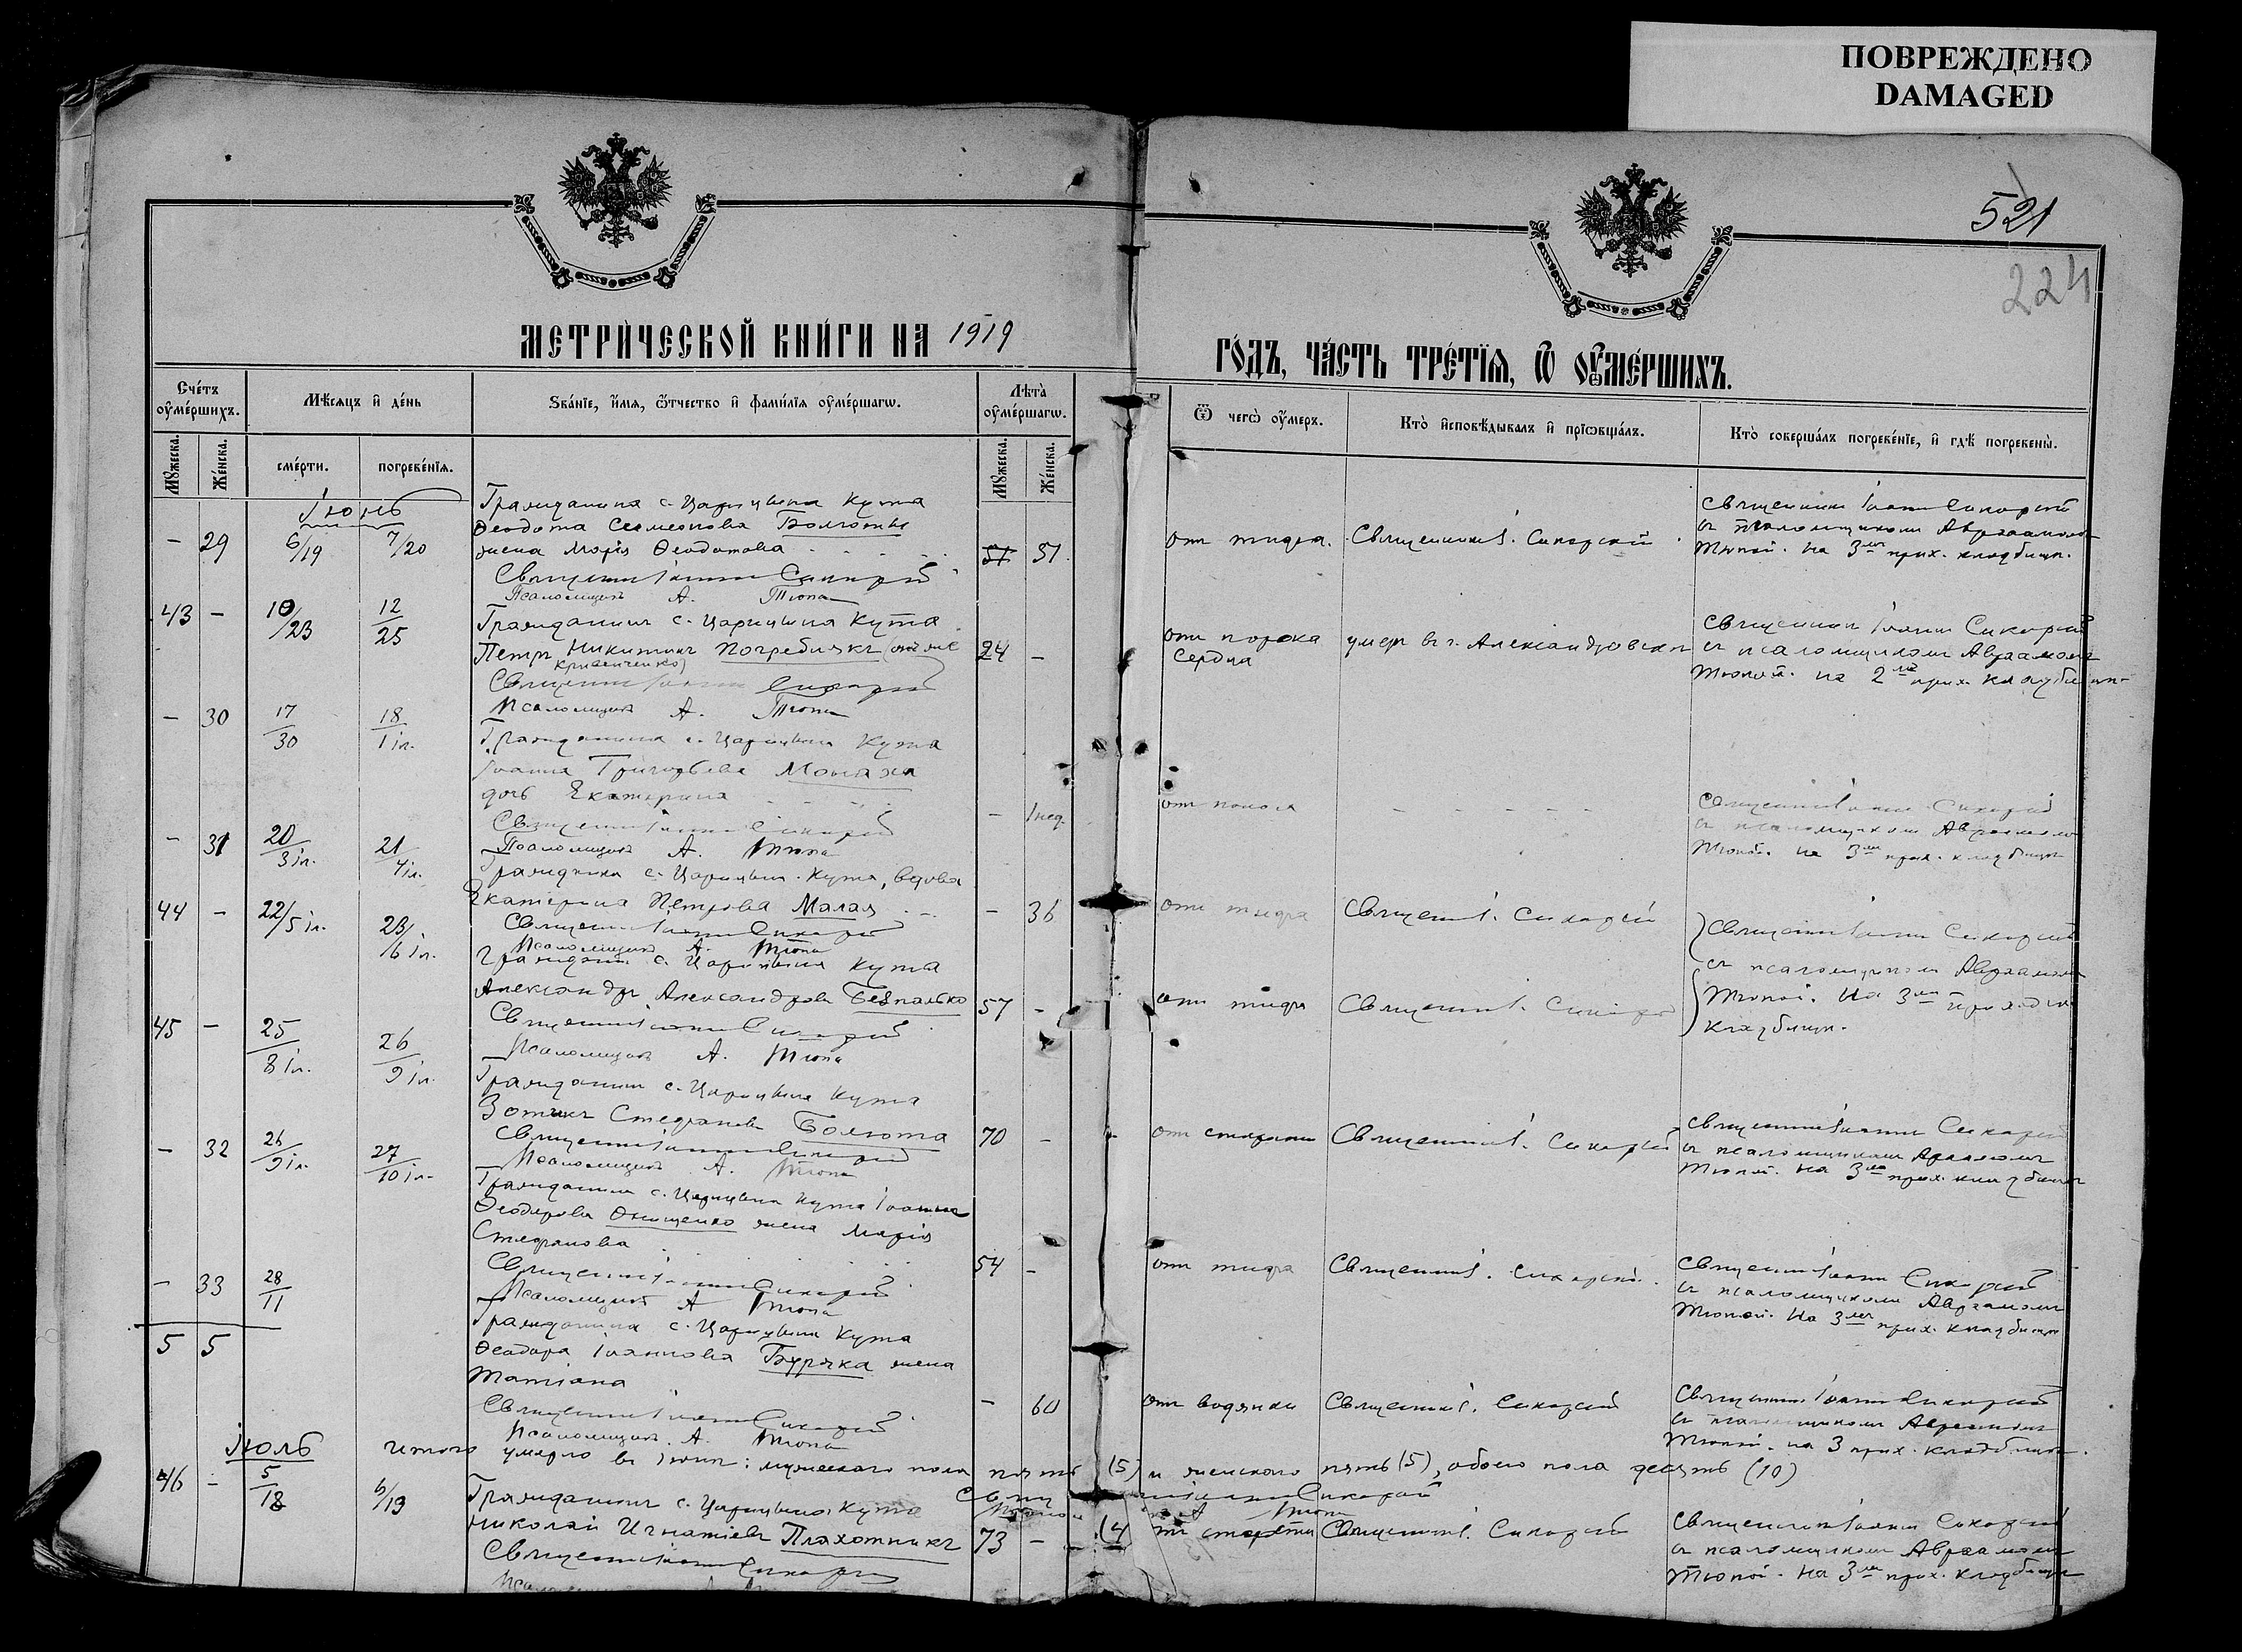 ПОВРЕЖДЕНО
DAMAGED
521
224
МЕТРИЧЕСКОЙ КНИГИ НА 1919
ГОДЪ, ЧАСТЬ ТРЕТІЯ, Ѿ ОУМЕРШИХЪ.
Счетъ оумершихъ.
Мѣсяцъ и день
Званіе, имя, ѿтчество и фамилія оумершагѡ.
Лѣта оумершагѡ.
Ѿ чегѡ оумеръ.
Кто исповѣдывалъ и пріѡбщалъ.
Кто совершалъ погребеніе, и гдѣ погребены.
Мужеска.
Женска.
смерти.
погребенія.
Мужеска.
Женска.
Іюнь
– 29 6/19 7/20
Гражданина с. Царицына Кута
Ѳеодота Симеонова Болюты
жена Марія Ѳеодотова
51 51.
отъ тифа. Священникъ І. Сикорскій
Священникъ Іоаннъ Сикорскій
съ псаломщикомъ Авраамомъ
Тюпой. на 3мъ прих. кладбищѣ.
Священникъ Іоаннъ Сикорскій
Псаломщикъ А. Тюпа
43 – 10/23 12/25
Гражданинъ с. Царицына Кута
Петръ Никитинъ Погребнякъ (онъ же
Кривенченко)
24 –
отъ порока
сердца
умеръ въ г. Александровскѣ
Священникъ Іоаннъ Сикорскій
съ псаломщикомъ Авраамомъ
Тюпой. на 2мъ прих. кладбищѣ
Священникъ Іоаннъ Сикорскій
Псаломщикъ А. Тюпа
– 30 17/30 18/1 іл.
Гражданина с. Царицына Кута
Іоанна Григорьева Монаха
дочь Екатерина
– 1 нед.
отъ поноса
Священникъ Іоаннъ Сикорскій
съ псаломщикомъ Авраамомъ
Тюпой. на 3мъ прих. кладбищѣ
Священникъ Іоаннъ Сикорскій
Псаломщикъ А. Тюпа
– 31 20/3 іл. 21/4 іл.
Гражданка с. Царицына Кута, вдова
Екатерина Петрова Малая
– 36
отъ тифа Священникъ І. Сикорскій
Священникъ Іоаннъ Сикорскій
съ псаломщикомъ Авраамомъ
Тюпой. на 3мъ приход.
кладбищѣ.
Священникъ Іоаннъ Сикорскій
Псаломщикъ А. Тюпа
44 – 22/5 іл. 23/6 іл.
Гражданинъ с. Царицына Кута
Александръ Александровъ Безпалько
57 –
отъ тифа Священникъ І. Сикорскій
Священникъ Іоаннъ Сикорскій
Псаломщикъ А. Тюпа
45 – 25/8 іл. 26/9 іл.
Гражданинъ с. Царицына Кута
Зотикъ Стефановъ Болюта
70 –
отъ старости Священникъ І. Сикорскій
Священникъ Іоаннъ Сикорскій
съ псаломщикомъ Авраамомъ
Тюпой. на 3мъ прих. кладбищѣ
Священникъ Іоаннъ Сикорскій
Псаломщикъ А. Тюпа
– 32 26/9 іл. 27/10 іл.
Гражданина с. Царицына Кута Іоанна
Ѳеодорова Онищенко жена Марія
Стефанова
54 –
отъ тифа Священникъ І. Сикорскій.
Священникъ Іоаннъ Сикорскій
съ псаломщикомъ Авраамомъ
Тюпой. на 3мъ прих. кладбищѣ
Священникъ Іоаннъ Сикорскій
Псаломщикъ А. Тюпа
– 33 28/11
Гражданина с. Царицына Кута
Ѳеодора Іоаннова Буряка жена
Татіана
– 60
отъ водянки Священникъ І. Сикорскій
Священникъ Іоаннъ Сикорскій
съ псаломщикомъ Авраамомъ
Тюпой. на 3 прих. кладбищѣ.
5 5
Священникъ Іоаннъ Сикорскій
Псаломщикъ А. Тюпа
итого умерло въ іюнѣ: мужескаго пола пять (5) и женскаго пять (5), обоего пола десять (10)
Священникъ Іоаннъ Сикорскій
А Тюпа
Іюль
46 – 5/18 6/19
Гражданинъ с. Царицына Кута
Николай Игнатіевъ Плахотникъ
73 –
старости Священникъ І. Сикорскій
Священникъ Іоаннъ Сикорскій
съ псаломщикомъ Авраамомъ
Тюпой. на 3мъ прих. кладбищѣ
Священникъ Іоаннъ Сикорскій